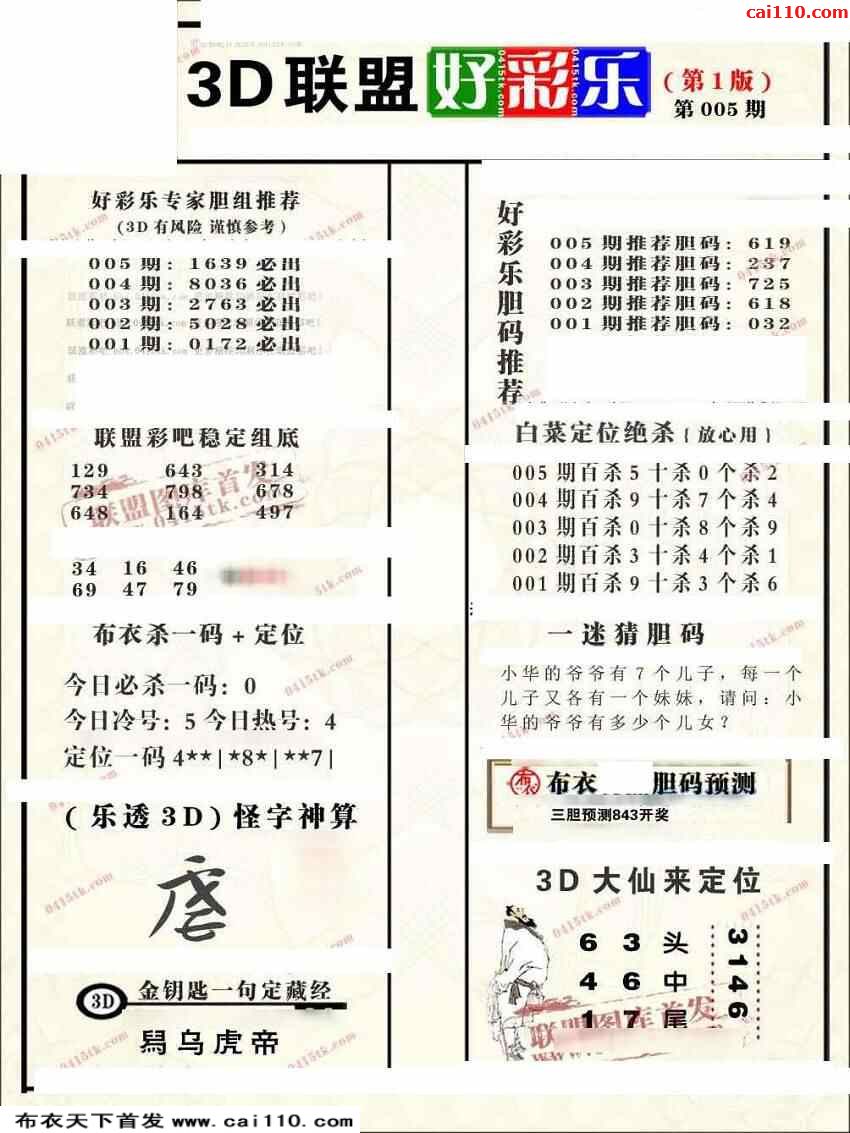 cai110.com
3D联盟好彩乐(第1版)
第005期
好彩乐专家胆组推荐
(3D有风险 谨慎参考)
005期:1639必出
004期:8036必出
003期:2763必出
002期:5028必出
001期:0172必出
联盟彩吧稳定组底
129 643 314
734 798 678
648 164 497
34 16 46
69 47 79
布衣杀一码+定位
今日必杀一码:0
今日冷号:5今日热号:4
定位一码4**|*8*|**7|
(乐透3D)怪字神算
3D 金钥匙一句定藏经
舄乌虎帝
好彩乐胆码推荐
005期推荐胆码:619
004期推荐胆码:237
003期推荐胆码:725
002期推荐胆码:618
001期推荐胆码:032
白菜定位绝杀{放心用}
005期百杀5十杀0个杀2
004期百杀9十杀7个杀4
003期百杀0十杀8个杀9
002期百杀3十杀4个杀1
001期百杀9十杀3个杀6
一迷猜胆码
小华的爷爷有7个儿子,每一个
儿子又各有一个妹妹,请问:小
华的爷爷有多少个儿女?
布衣 布衣 胆码预测
三胆预测843开奖
3D大仙来定位
6 3 头
4 6 中
1 7 尾
3146
联盟图库首发
0415tk.com
布衣天下首发 www.cai110.com